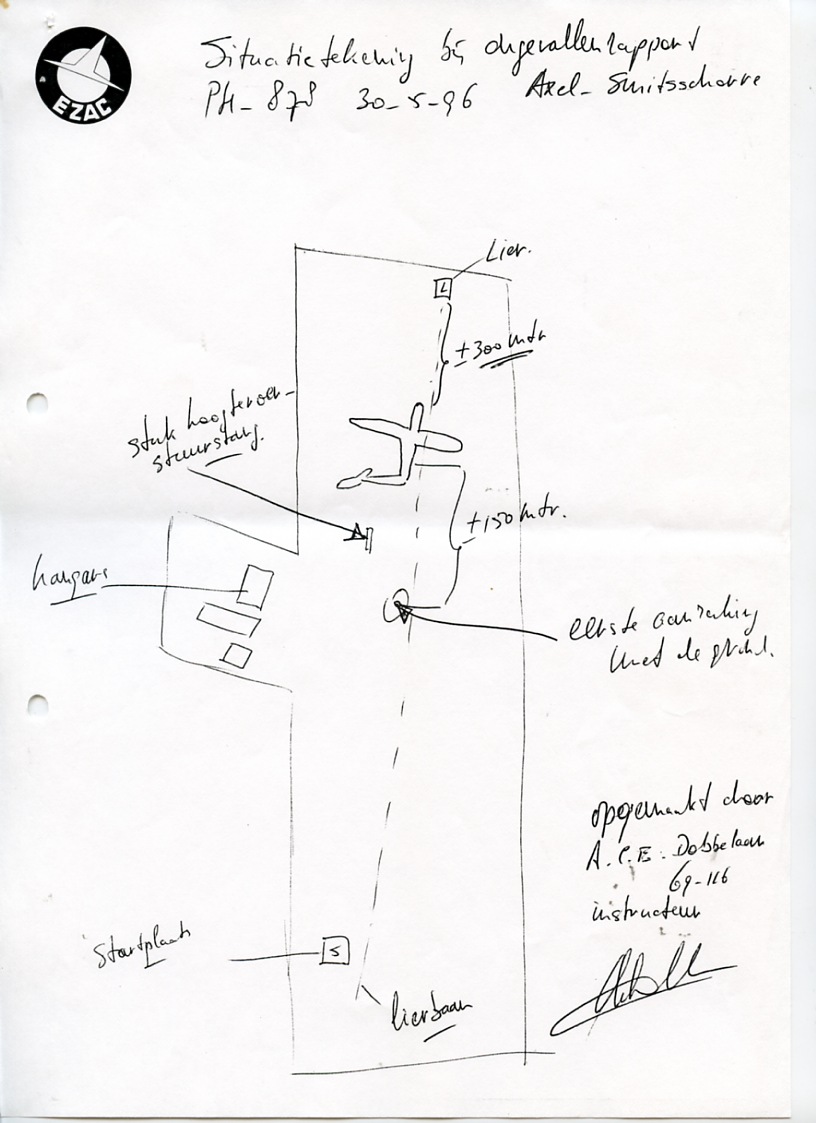 EZAC
Situatietekening bij ongevallenrapport
PH-878 30-5-96 Axel-Smitsschorre
Lier.
L
±300 mtr
stuk hoogteroer-
stuurstang.
±150 mtr.
hangars
eerste aanraking
met de grond.
opgemaakt door
A.C.E. Dobbelaar
69-116
instructeur
startplaats
S
lierbaan